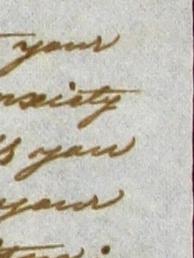 your
anxiety
you
your